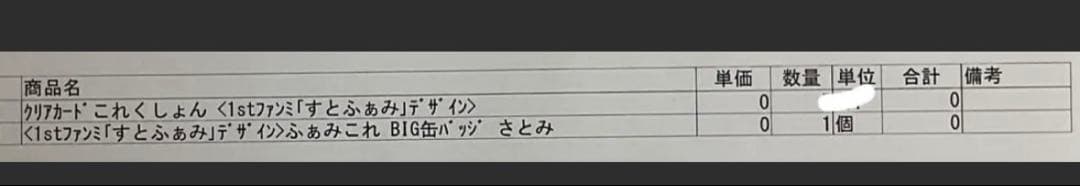 商品名 単価 数量 単位 合計 備考
ｸﾘｱｶｰﾄﾞこれくしょん <1stﾌｧﾝﾐ｢すとふぁみ｣ﾃﾞｻﾞｲﾝ> 0 0
<1stﾌｧﾝﾐ｢すとふぁみ｣ﾃﾞｻﾞｲﾝ>ふぁみこれ BIG缶ﾊﾞｯｼﾞ さとみ 0 1 個 0